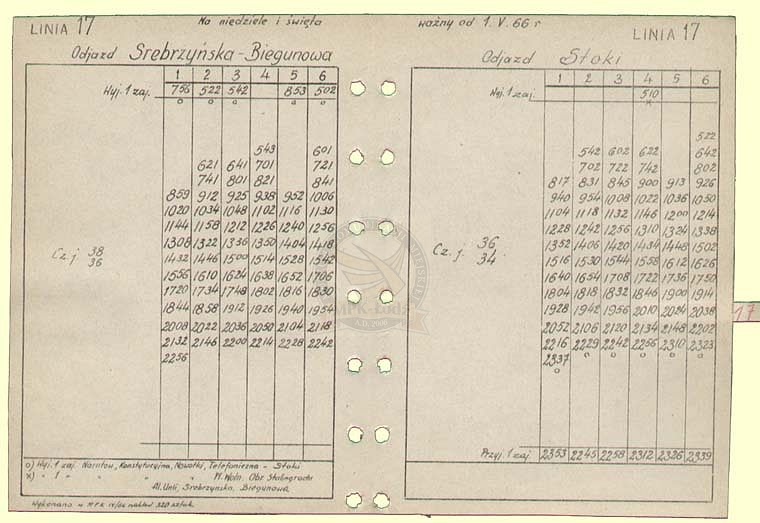 LINIA 17 Na niedziele i święta
Odjazd Srebrzyńska-Biegunowa
1 2 3 4 5 6
Wyj. 1 zaj. 756 522 542 853 502
o o o o o
543 601
621 641 701 721
741 801 821 841
859 912 925 938 952 1006
1020 1034 1048 1102 1116 1130
1144 1158 1212 1226 1240 1256
Cz. j. 38 36
1308 1322 1336 1350 1404 1418
1432 1446 1500 1514 1528 1542
1556 1610 1624 1638 1652 1706
1720 1734 1748 1802 1816 1830
1844 1858 1912 1926 1940 1954
2008 2022 2036 2050 2104 2118
2132 2146 2200 2214 2228 2242
2256
o) Wyj. 1 zaj. Narutow., Konstytucyjna, Nowotki, Telefoniczna - Stoki
x) " 1 " " " Pl. Woln. Obr. Stalingradu
Al. Unii, Srebrzyńska, Biegunowa
Wykonano w MPK nakład 320 sztuk
ważny od 1. V. 66 r
LINIA 17
Odjazd Stoki
1 2 3 4 5 6
Wyj. 1 zaj. 510
x
522
542 602 622 642
702 722 742 802
817 831 845 900 913 926
940 954 1008 1022 1036 1050
1104 1118 1132 1146 1200 1214
1228 1242 1256 1310 1324 1338
Cz. j. 36 34
1352 1406 1420 1434 1448 1502
1516 1530 1544 1558 1612 1626
1640 1654 1708 1722 1736 1750
1804 1818 1832 1846 1900 1914
1928 1942 1956 2010 2024 2038
2052 2106 2120 2134 2148 2202
2216 2229 2242 2256 2310 2323
2337 o o o o o
o
Przyj. 1 zaj. 2353 2245 2258 2312 2326 2339
17
MPK-Łódź